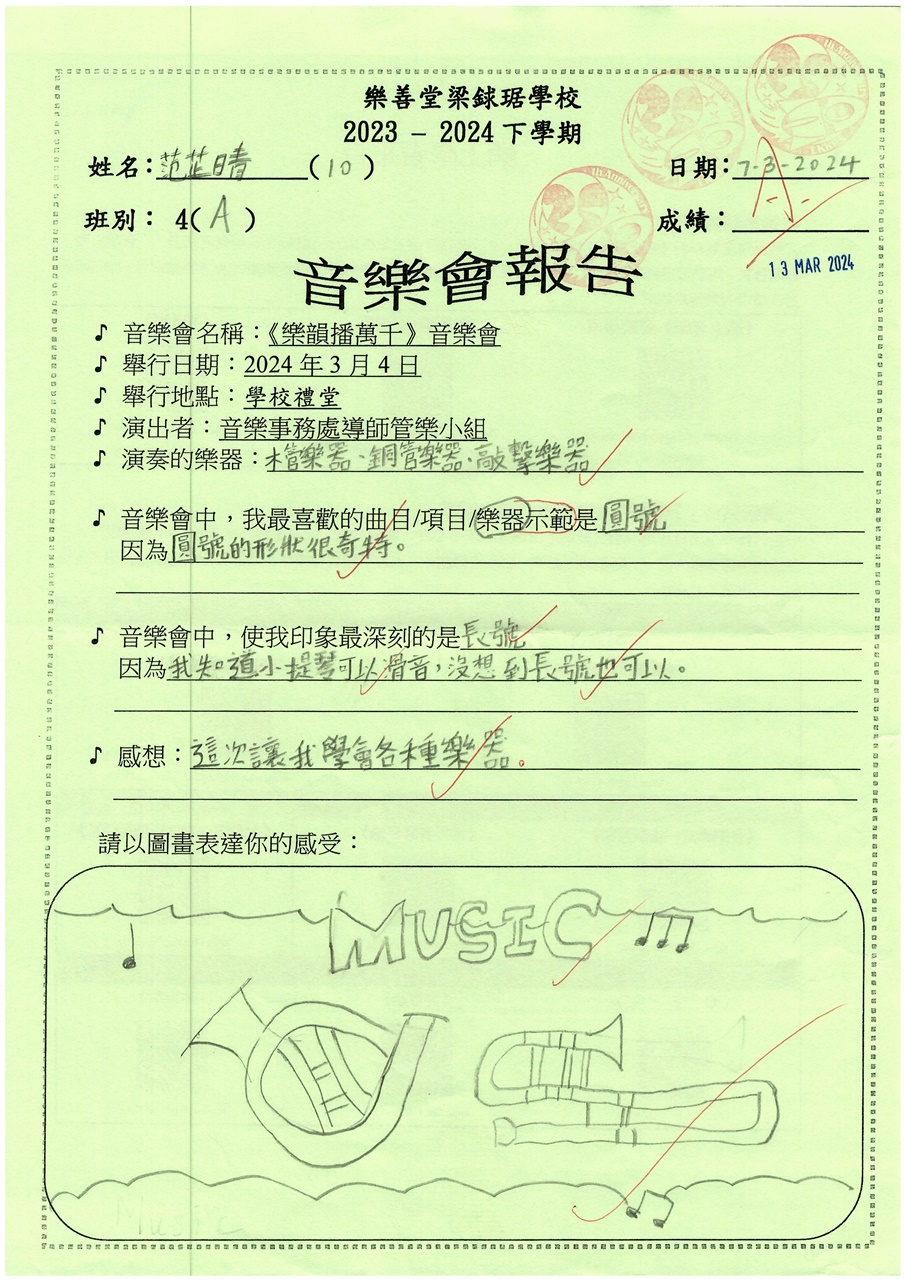 樂善堂梁銶琚學校
2023 – 2024 下學期
姓名：范芷晴 (10) 日期：7-3-2024
班別： 4( A ) 成績： A-
13 MAR 2024
音樂會報告
♪ 音樂會名稱：《樂韻播萬千》音樂會
♪ 舉行日期：2024 年 3 月 4 日
♪ 舉行地點：學校禮堂
♪ 演出者：音樂事務處導師管樂小組
♪ 演奏的樂器：木管樂器、銅管樂器、敲擊樂器
♪ 音樂會中，我最喜歡的曲目/項目/樂器示範是 圓號
因為圓號的形狀很奇特。
♪ 音樂會中，使我印象最深刻的是長號
因為我知道小提琴可以滑音，沒想到長號也可以。
♪ 感想：這次讓我學會各種樂器。
請以圖畫表達你的感受：
MUSIC
Music